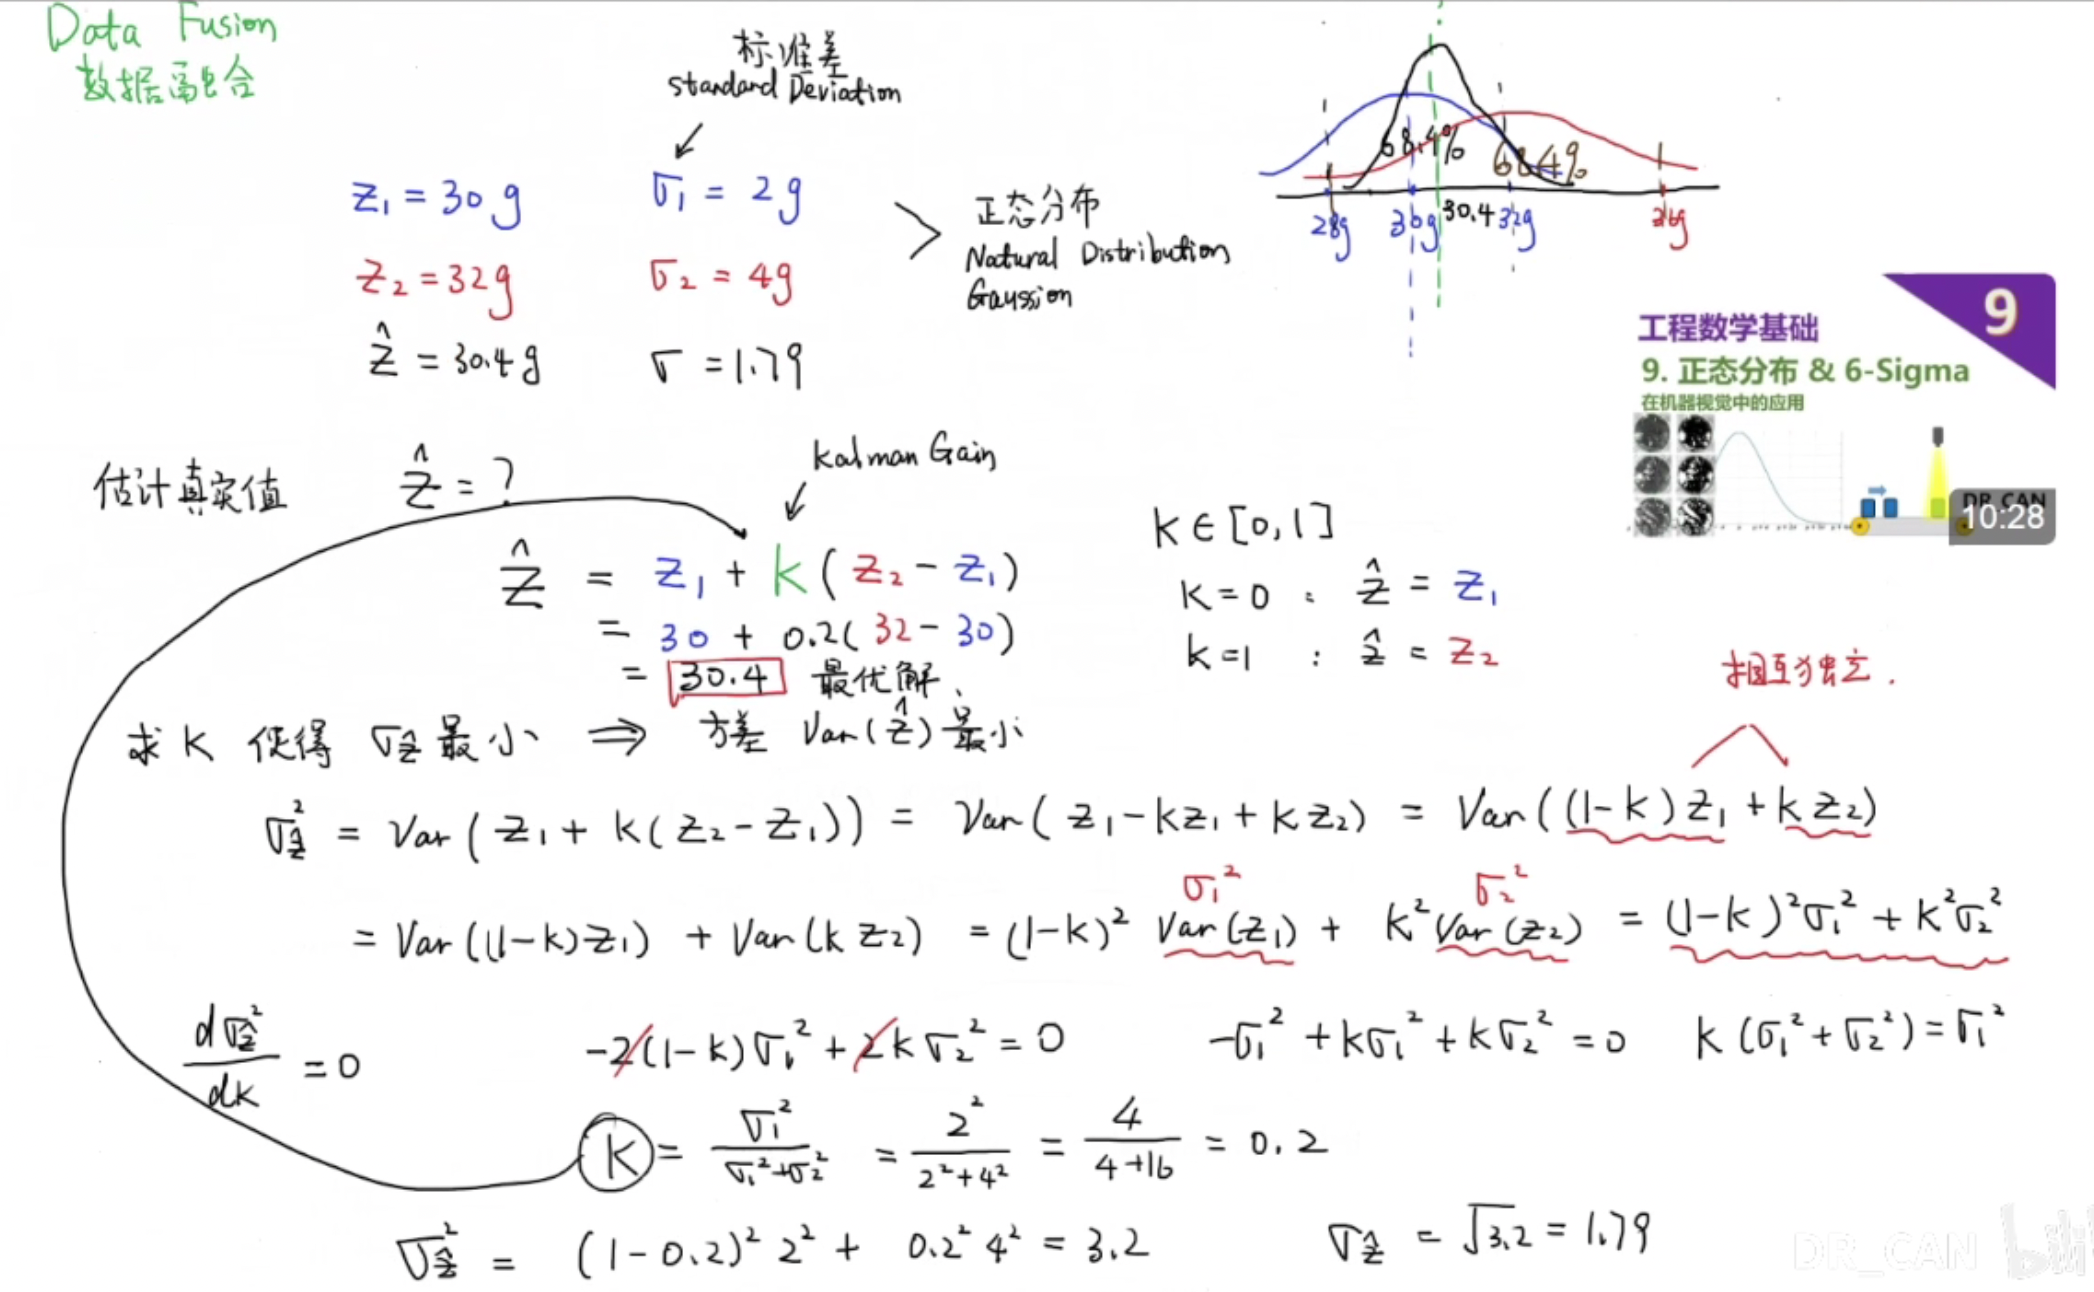 Data Fusion
数据融合
标准差
Standard Deviation
z₁ = 30g σ₁ = 2g
z₂ = 32g σ₂ = 4g
ẑ = 30.4g σ = 1.79
正态分布
Natural Distribution
Gaussion
68.4% 68.4%
28g 30g 30.4 32g 36g
9
工程数学基础
9. 正态分布 & 6-Sigma
在机器视觉中的应用
DR_CAN
10:28
估计真实值 ẑ = ?
Kalman Gain
ẑ = z₁ + k(z₂ - z₁)
= 30 + 0.2(32 - 30)
= 30.4 最优解
k ∈ [0,1]
k = 0 : ẑ = z₁
k = 1 : ẑ = z₂
相互独立.
求 k 使得 σẑ 最小 ⇒ 方差 Var(ẑ) 最小
σẑ² = Var(z₁ + k(z₂ - z₁)) = Var(z₁ - kz₁ + kz₂) = Var((1-k)z₁ + kz₂)
σ₁² σ₂²
= Var((1-k)z₁) + Var(kz₂) = (1-k)² Var(z₁) + k² Var(z₂) = (1-k)²σ₁² + k²σ₂²
dσẑ²/dk = 0 -2(1-k)σ₁² + 2kσ₂² = 0 -σ₁² + kσ₁² + kσ₂² = 0 k(σ₁² + σ₂²) = σ₁²
k = σ₁²/(σ₁²+σ₂²) = 2²/(2²+4²) = 4/(4+16) = 0.2
σẑ² = (1-0.2)² 2² + 0.2² 4² = 3.2 σẑ = √3.2 = 1.79
DR_CAN bilibili